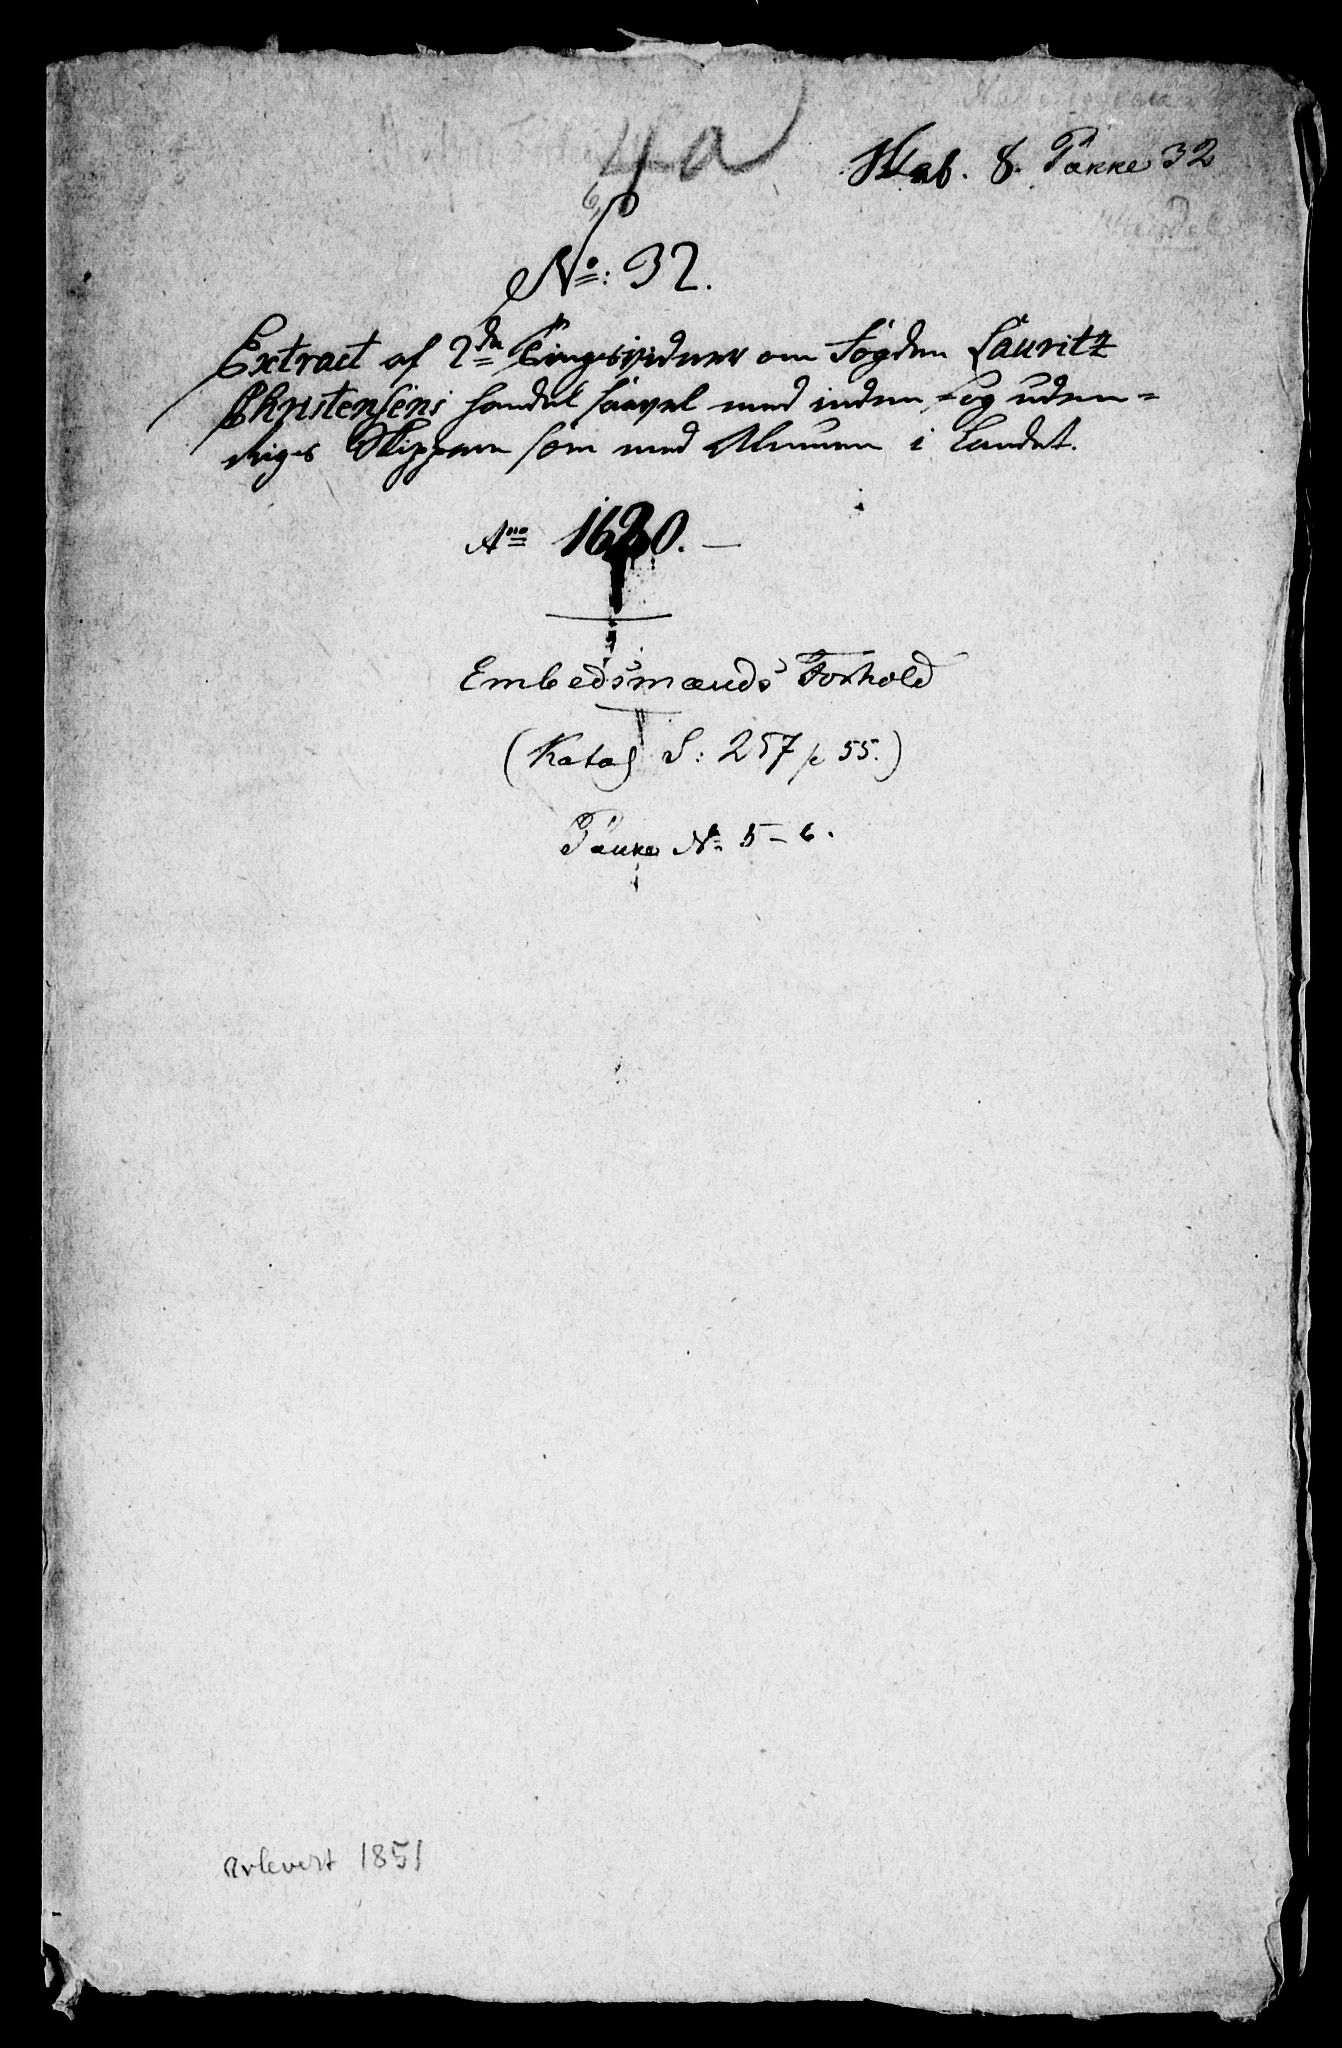 4a
Skab. 8. Pakke 32
No: 32.
Extract af 2de Tingsvidner om Fogden Lauritz
Christensens handel saavel med inden- og uden=
rigs Skippere som med Almuen i Landet.
Ano 1620. —
Embedsmænds Forhold
(Katal S: 257 p 55.)
Pakke No 5-6.
Avlevert 1851